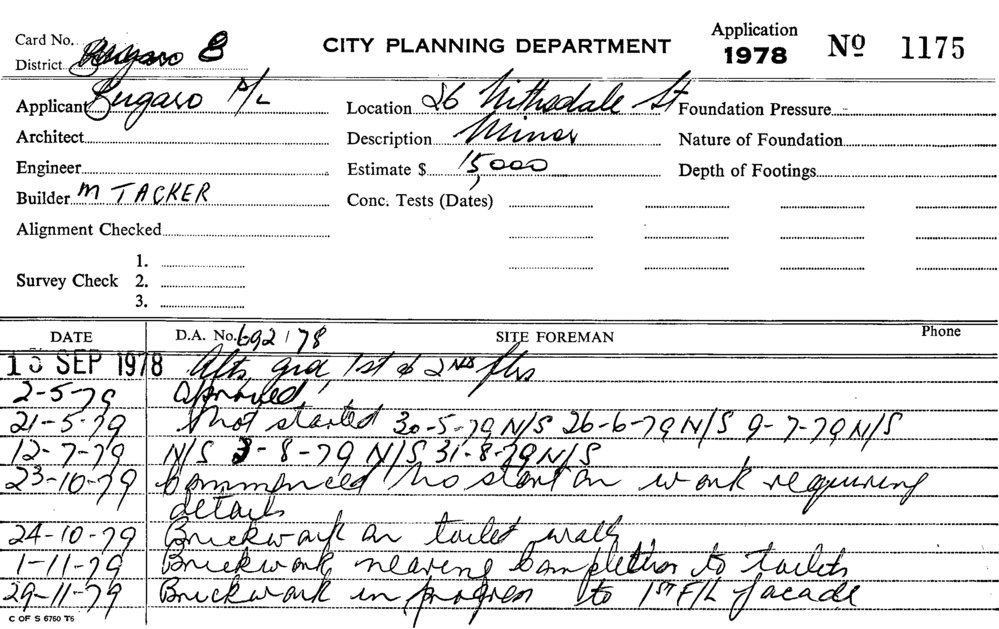 Card No.
District Bugaro B
CITY PLANNING DEPARTMENT
Application
1978 Nº 1175
Applicant Bugaro P/L
Location 26 Nithsdale St
Foundation Pressure
Architect
Description Minor
Nature of Foundation
Engineer
Estimate $ 15,000
Depth of Footings
Builder M TACKER
Conc. Tests (Dates)
Alignment Checked
Survey Check 1.
2.
3.
DATE D.A. No. 692/78 SITE FOREMAN Phone
SEP 1978 Alts grd 1st & 2ND flrs
2-5-79 approved
21-5-79 Not started 30-5-79 N/S 26-6-79 N/S 9-7-79 N/S
12-7-79 N/S 3-8-79 N/S 31-8-79 N/S
23-10-79 Commenced No start on work requiring
details
24-10-79 Brickwork on toilet walls
1-11-79 Brickwork nearing completion to toilets
29-11-79 Brickwork in progress to 1ST F/L facade
C OF S 6760 T5